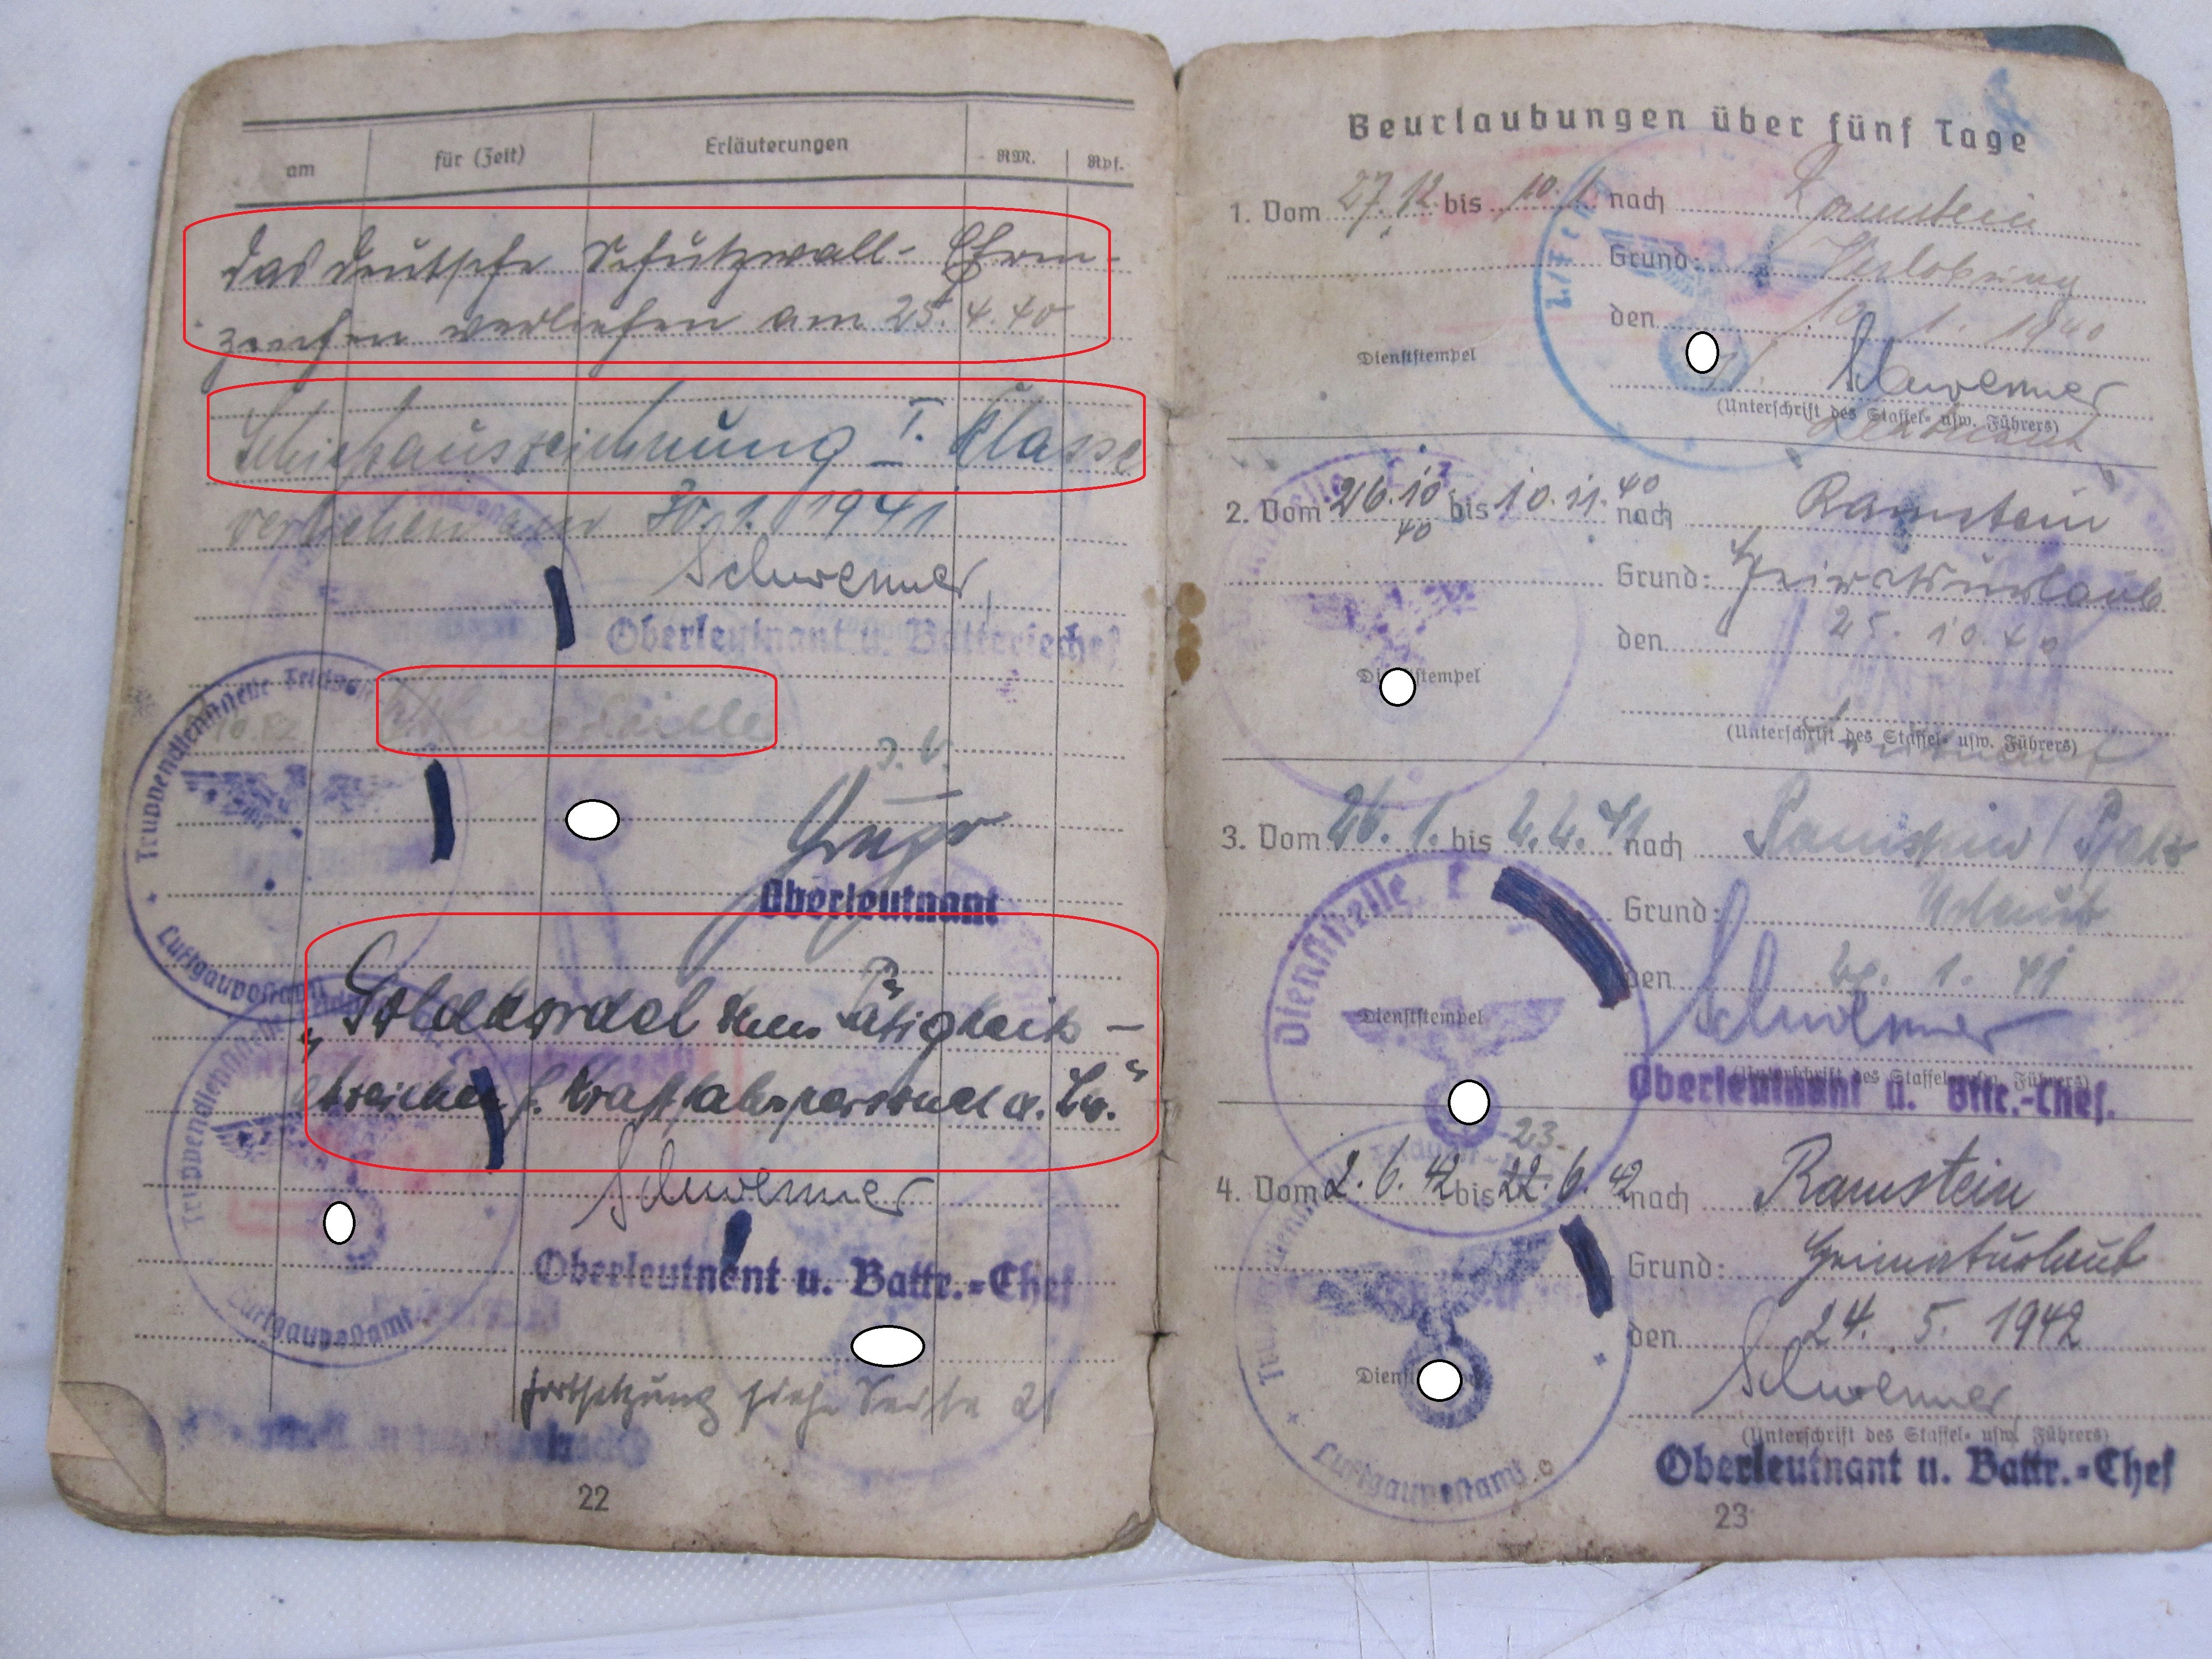 am für (Zeit) Erläuterungen RM. Rpf.
das deutsche Schutzwall-Ehren-
zeichen verliehen am 25.4.40
Schießauszeichnung I. Klasse
verliehen am 30.1.1941
Schwemmer
Oberleutnant u. Batteriechef
Truppendienststelle Feldpost
Luftgaupostamt
J.V.
Oberleutnant
"Goldkordel zum Tätigkeits-
abzeichen f. Kraftfahrpersonal d. Lw."
Schwemmer
Oberleutnant u. Battr.-Chef
Luftgaupostamt
Fortsetzung siehe Seite 21
22
Beurlaubungen über fünf Tage
1. Vom 27.12. bis 10.1. nach Ramstein
Grund: Verlobung
den 10.1.1940
Dienststempel
Schwemmer
(Unterschrift des Staffel- usw. Führers)
Leutnant
2. Vom 26.10.40 bis 10.11.40 nach Ramstein
Grund: Heiratsurlaub
den 25.10.40
Dienststempel
(Unterschrift des Staffel- usw. Führers)
Leutnant
3. Vom 26.1. bis nach Ramstein / Pfalz
Grund: Urlaub
Dienststelle L
den 1. 41
Dienststempel
Schwemmer
(Unterschrift des Staffel- usw. Führers)
Oberleutnant u. Bttr.-Chef.
23.
4. Vom 2.6.42 bis 22.6.42 nach Ramstein
Grund: Heimaturlaub
den 24. 5. 1942
Dienststempel
Schwemmer
(Unterschrift des Staffel- usw. Führers)
Luftgaupostamt
Oberleutnant u. Battr.-Chef
23